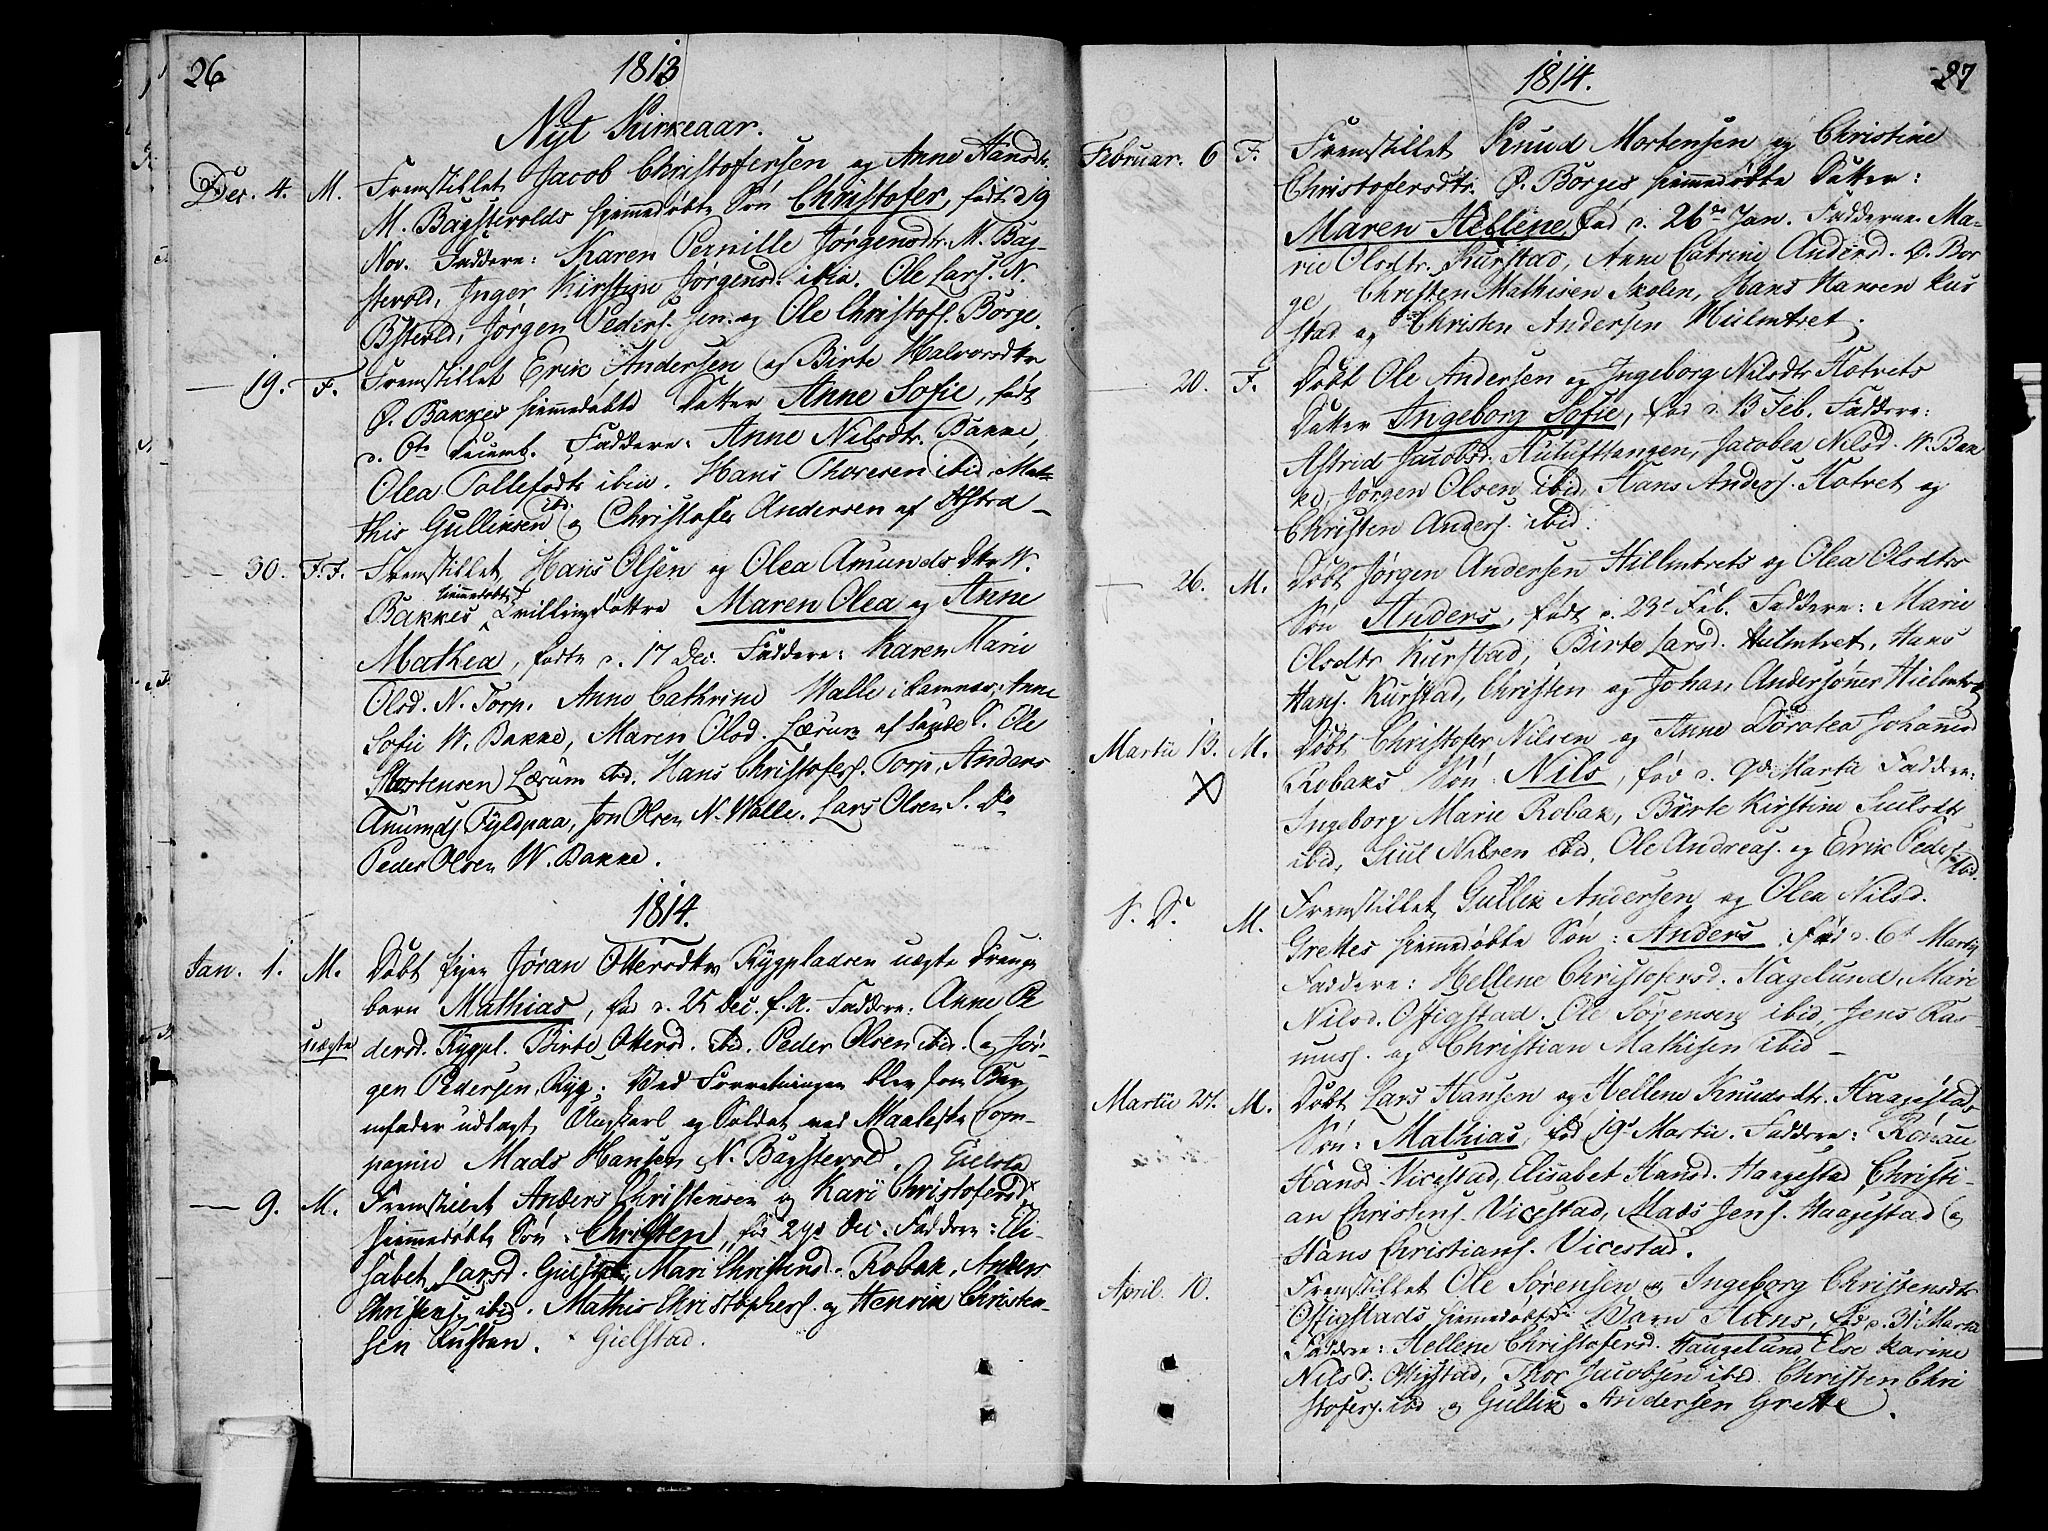 26
1813
Nyt Kirkeaar.
Dec. 4. M. Fremstillet Jacob Christofersen og Anne Hansdtr.
M. Bagstevolds hiemmedøbte Søn Christofer, født d 9
Nov. Faddere: Karen Pernille Jørgensdtr. M. Bag-
stevold, Inger Kirstine Jørgensd. ibid. Ole Lars. N.
Bstevold, Jørgen Peders. sen. og Ole Christofs. Borge.
— 19. F. Fremstillet Erik Andersen og Birte Halvorsdtr
Ø. Bakkes hiemmedøbte Datter Anne Sofie, født
d. 6te Decemb. Faddere: Anne Nilsdtr. Bakke,
Olea Tollefsdtr ibid. Hans Thoresen ibid. Mat-
this Gulliksen ibid. og Christofer Andersen af Astra —
— 30. F. F. Fremstillet Hans Olsen og Olea Amundsdtr W.
Bakkes hiemmedøbte Tvillingdøttre Maren Olea og Anne
Mathea, fødte d. 17 Dec. Faddere: Karen Marie
Olsd. N. Torp. Anne Cathrine Walle i Ramnes, Anne
Sofie W. Bakke, Maren Olsd. Lærum af Sande S. Ole
Mortensen Lærum ibd. Hans Christofers. Torp, Anders
Amunds. Fyldpaa, Jon Olsen N. Walle. Lars Olsen S. Do
Peder Olsen W. Bakke.
1814.
Jan. 1. M. Døbt Pigen Jøran Ottersdtr Rygpladsen uægte Drenge
barn Mathias, fød d. 25 Dec. f. A. Faddere: Anne Pe
uægte dersd. Rygpl. Birte Ottersd. ibid. Peder Olsen ibid. og Jør-
gen Pedersen Ryg. Ved Forretningen blev som Bar
nefader udlagt Ungkarl og Soldat ved Maalestr Com-
pagnie Mads Hansen N. Bagstevold.
— 9. M. Fremstillet Anders Christensen og Kari Christofersd. x
hiemmedøbte Søn: Christen, fød 29de Dec. Faddere: Eli-
sabet Larsd. Gielstad, Mari Christensd. Robak, Anders
Christens. ibid. Mathis Christophers. og Henrik Christen-
sen Rusten. x Gielstad.
27
1814.
Februar. 6 F. Fremstillet Knud Mortensen og Christine
Christofersdtr. Ø. Borges hiemmedøbte Datter:
Maren Hellene, fød d. 26de Jan. Fadderne. Ma-
rie Olsdtr. Kurstad, Anne Catrine Andersd. Ø. Bor
ge, Christen Mathisen Skolen, Hans Hansen Kur
stad og Christen Andersen Hulmtret.
— 20. F. Døbt Ole Andersen og Ingeborg Nilsdtr Hotvets
Datter Ingeborg Sofie, fød d. 13 Feb. Faddere:
Astrid Jacobsd. Hulufthangen, Jacobea Nilsd. W. Bak
ke, Jørgen Olsen ibid, Hans Anders. Hotvet og
Christen Anders. ibid.
— 26. M. Døbt Jørgen Andersen Hillmtrets og Olea Olsdtr
Søn Anders, født d. 23de Feb. Faddere: Marie
Olsdtr Kurstad, Birte Larsd. Hulmtret, Hans
Hans. Kurstad, Christen og Johan Andersøner Hielmtret
Martii 13. M. Døbt Christofer Nilsen og Anne Dorotea Johannsd
Robaks Søn: Nils, fød d. 9de Martii Faddere:
Ingeborg Marie Robak, Birte Kirstine Siulsdtr
ibid, Siul Nilsen ibid, Ole Andreas. og Erik Peders. ibid.
S. D. M. Fremstillet Gullik Andersen og Olea Nilsd.
Grettes hiemmedøbte Søn: Anders, fød d. 6t Martii
Faddere: Hellene Christofersd. Hagelund, Mari
Nilsd. Oftigstad. Ole Sørensen ibid, Jens Ras-
muss. og Christian Mathisen ibid —
Martii 27. M. Døbt Lars Hansen og Hellene Knudsdtr. Haagestads
Søn: Mathias, fød 19d Martii. Faddere: Rønau
Hansd Vicestad, Elisabet Hansd. Haagestad, Christi-
an Christens. Vicestad, Mads Jens. Haagestad og
Hans Christians. Vicestad.
April. 10. Fremstillet Ole Sørensen og Ingeborg Christensdtr
Oftigstads hiemmedøbte Barn Hans, fød d. 31 Martii
Faddere: Hellene Christofersd. Haugelund, Else Karine
Nilsd. Oftigstad, Thor Jacobsen ibid. Christen Chri
stofers. ibd og Gullik Andersen Grette.